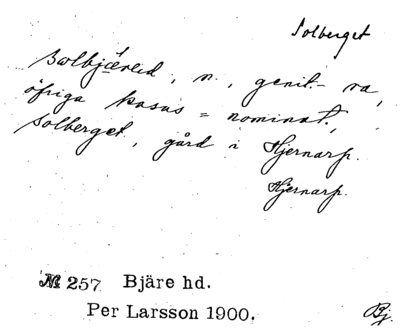 Solberget
Solbjærred, n., genit. - ra,
öfriga kasus = nominat.,
Solberget, gård i Hjernarp.
Hjernarp.
№ 257 Bjäre hd.
Per Larsson 1900.
Bj.